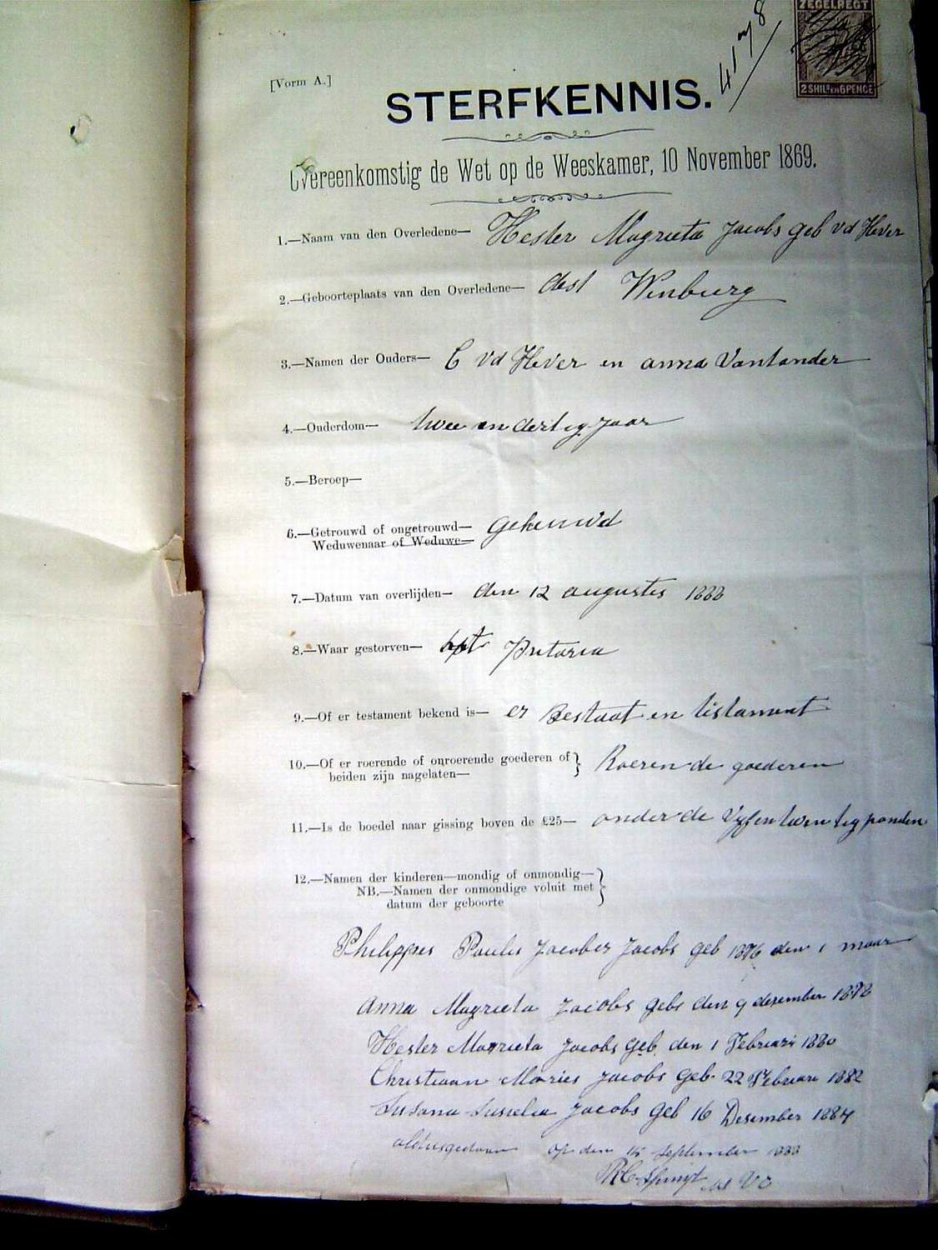 ZEGELREGT
2 SHILS EN 6 PENCE
4178
[Vorm A.]
STERFKENNIS.
Overeenkomstig de Wet op de Weeskamer, 10 November 1869.
1.—Naam van den Overledene— Hester Magrieta Jacobs geb vd Hever
2.—Geboorteplaats van den Overledene— dist Winburg
3.—Namen der Ouders— C vd Hever en anna Vantonder
4.—Ouderdom— twee en dertig jaar
5.—Beroep—
6.—Getrouwd of ongetrouwd—
Weduwenaar of Weduwe— getrouwd
7.—Datum van overlijden— den 12 augustes 1888
8.—Waar gestorven— Pretoria
9.—Of er testament bekend is— er Bestaat en testament
10.—Of er roerende of onroerende goederen of
beiden zijn nagelaten— Roeren de goederen
11.—Is de boedel naar gissing boven de £25— onder de Vyfentwentig ponden
12.—Namen der kinderen—mondig of onmondig—
NB.—Namen der onmondige voluit met
datum der geboorte
Philippes Paulis Jacobes Jacobs geb 1876 den 1 maar
Anna Magrieta Jacobs geb den 9 desember 1878
Hester Magrieta Jacobs geb den 1 Februari 1880
Christiaan Jacobs geb 22 Februari 1882
Susana Jacobs geb 16 Desember 1884
aldus gedaan op den September 1888